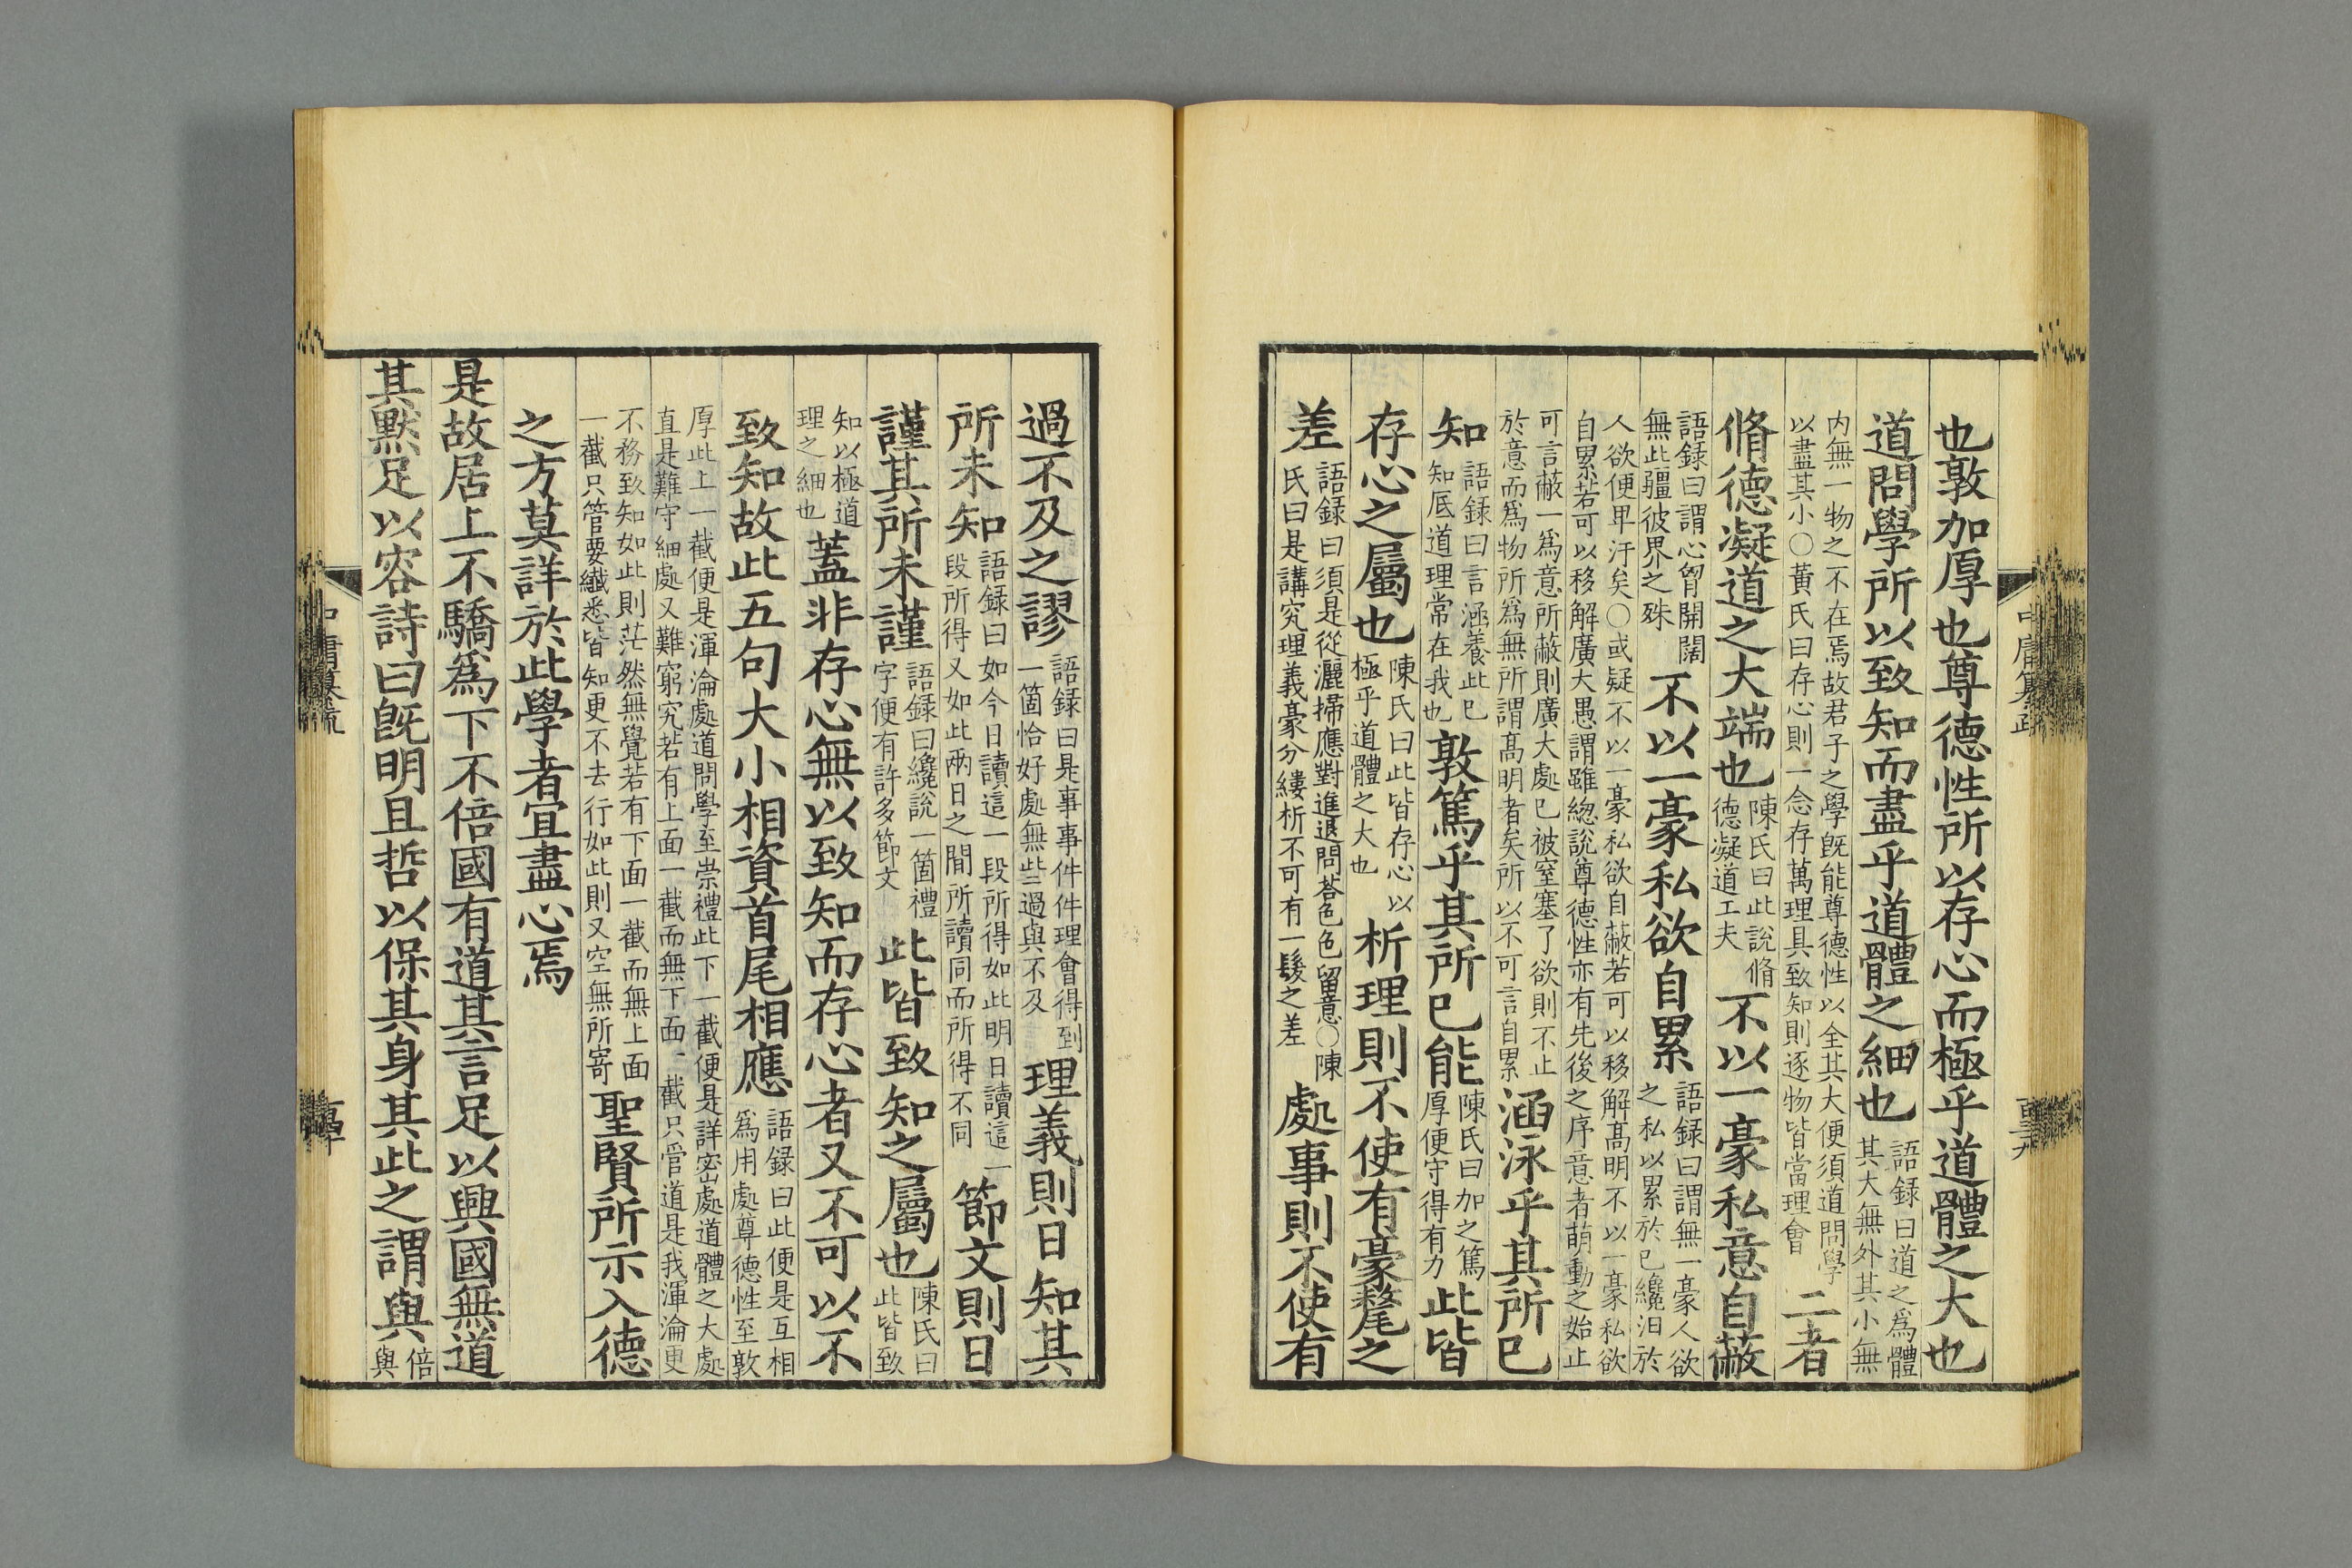 也敦加厚也尊德性所以存心而極乎道體之大也
道問學所以致知而盡乎道體之細也語録曰道之爲體其大無外其小無
内無一物之不在焉故君子之學旣能尊德性以全其大便須道問學以盡其小○黃氏曰存心則一念存萬理具致知則逐物皆當理會二者
脩德凝道之大端也陳氏曰此說脩德凝道工夫不以一豪私意自蔽
語録曰謂心胷開闊無此疆彼界之殊不以一豪私欲自累語録曰謂無一豪人欲之私以累於已纔汨於
人欲便卑汙矣○或疑不以一豪私欲自蔽若可以移解髙明不以一豪私欲自累若可以移解廣大愚謂雖緫說尊德性亦有先後之序意者萌動之始止
可言蔽一爲意所蔽則廣大處已被窒塞了欲則不止於意而爲物所爲無所謂髙明者矣所以不可言自累涵泳乎其所已
知語録曰言涵養此已知底道理常在我也敦篤乎其所已能陳氏曰加之篤厚便守得有力此皆
存心之屬也陳氏曰此皆存心以極乎道體之大也析理則不使有豪氂之
差語録曰須是從灑掃應對進退問荅色色留意○陳氏曰是講究理義豪分縷析不可有一髮之差處事則不使有
過不及之謬語録曰是事事件件理會得到一箇恰好處無些過與不及理義則日知其
所未知語録曰如今日讀這一段所得如此明日讀這一段所得又如此兩日之間所讀同而所得不同節文則日
謹其所未謹語録曰纔說一箇禮字便有許多節文此皆致知之屬也陳氏曰此皆致
知以極道理之細也蓋非存心無以致知而存心者又不可以不
致知故此五句大小相資首尾相應語録曰此便是互相爲用處尊德性至敦
厚此上一截便是渾淪處道問學至崇禮此下一截便是詳密處道體之大處直是難守細處又難窮究若有上面一截而無下面一截只管道是我渾淪更
不務致知如此則茫然無覺若有下面一截而無上面一截只管要纎悉皆知更不去行如此則又空無所寄聖賢所示入德
之方莫詳於此學者宜盡心焉
是故居上不驕爲下不倍國有道其言足以興國無道
其黙足以容詩曰旣明且哲以保其身其此之謂與倍與